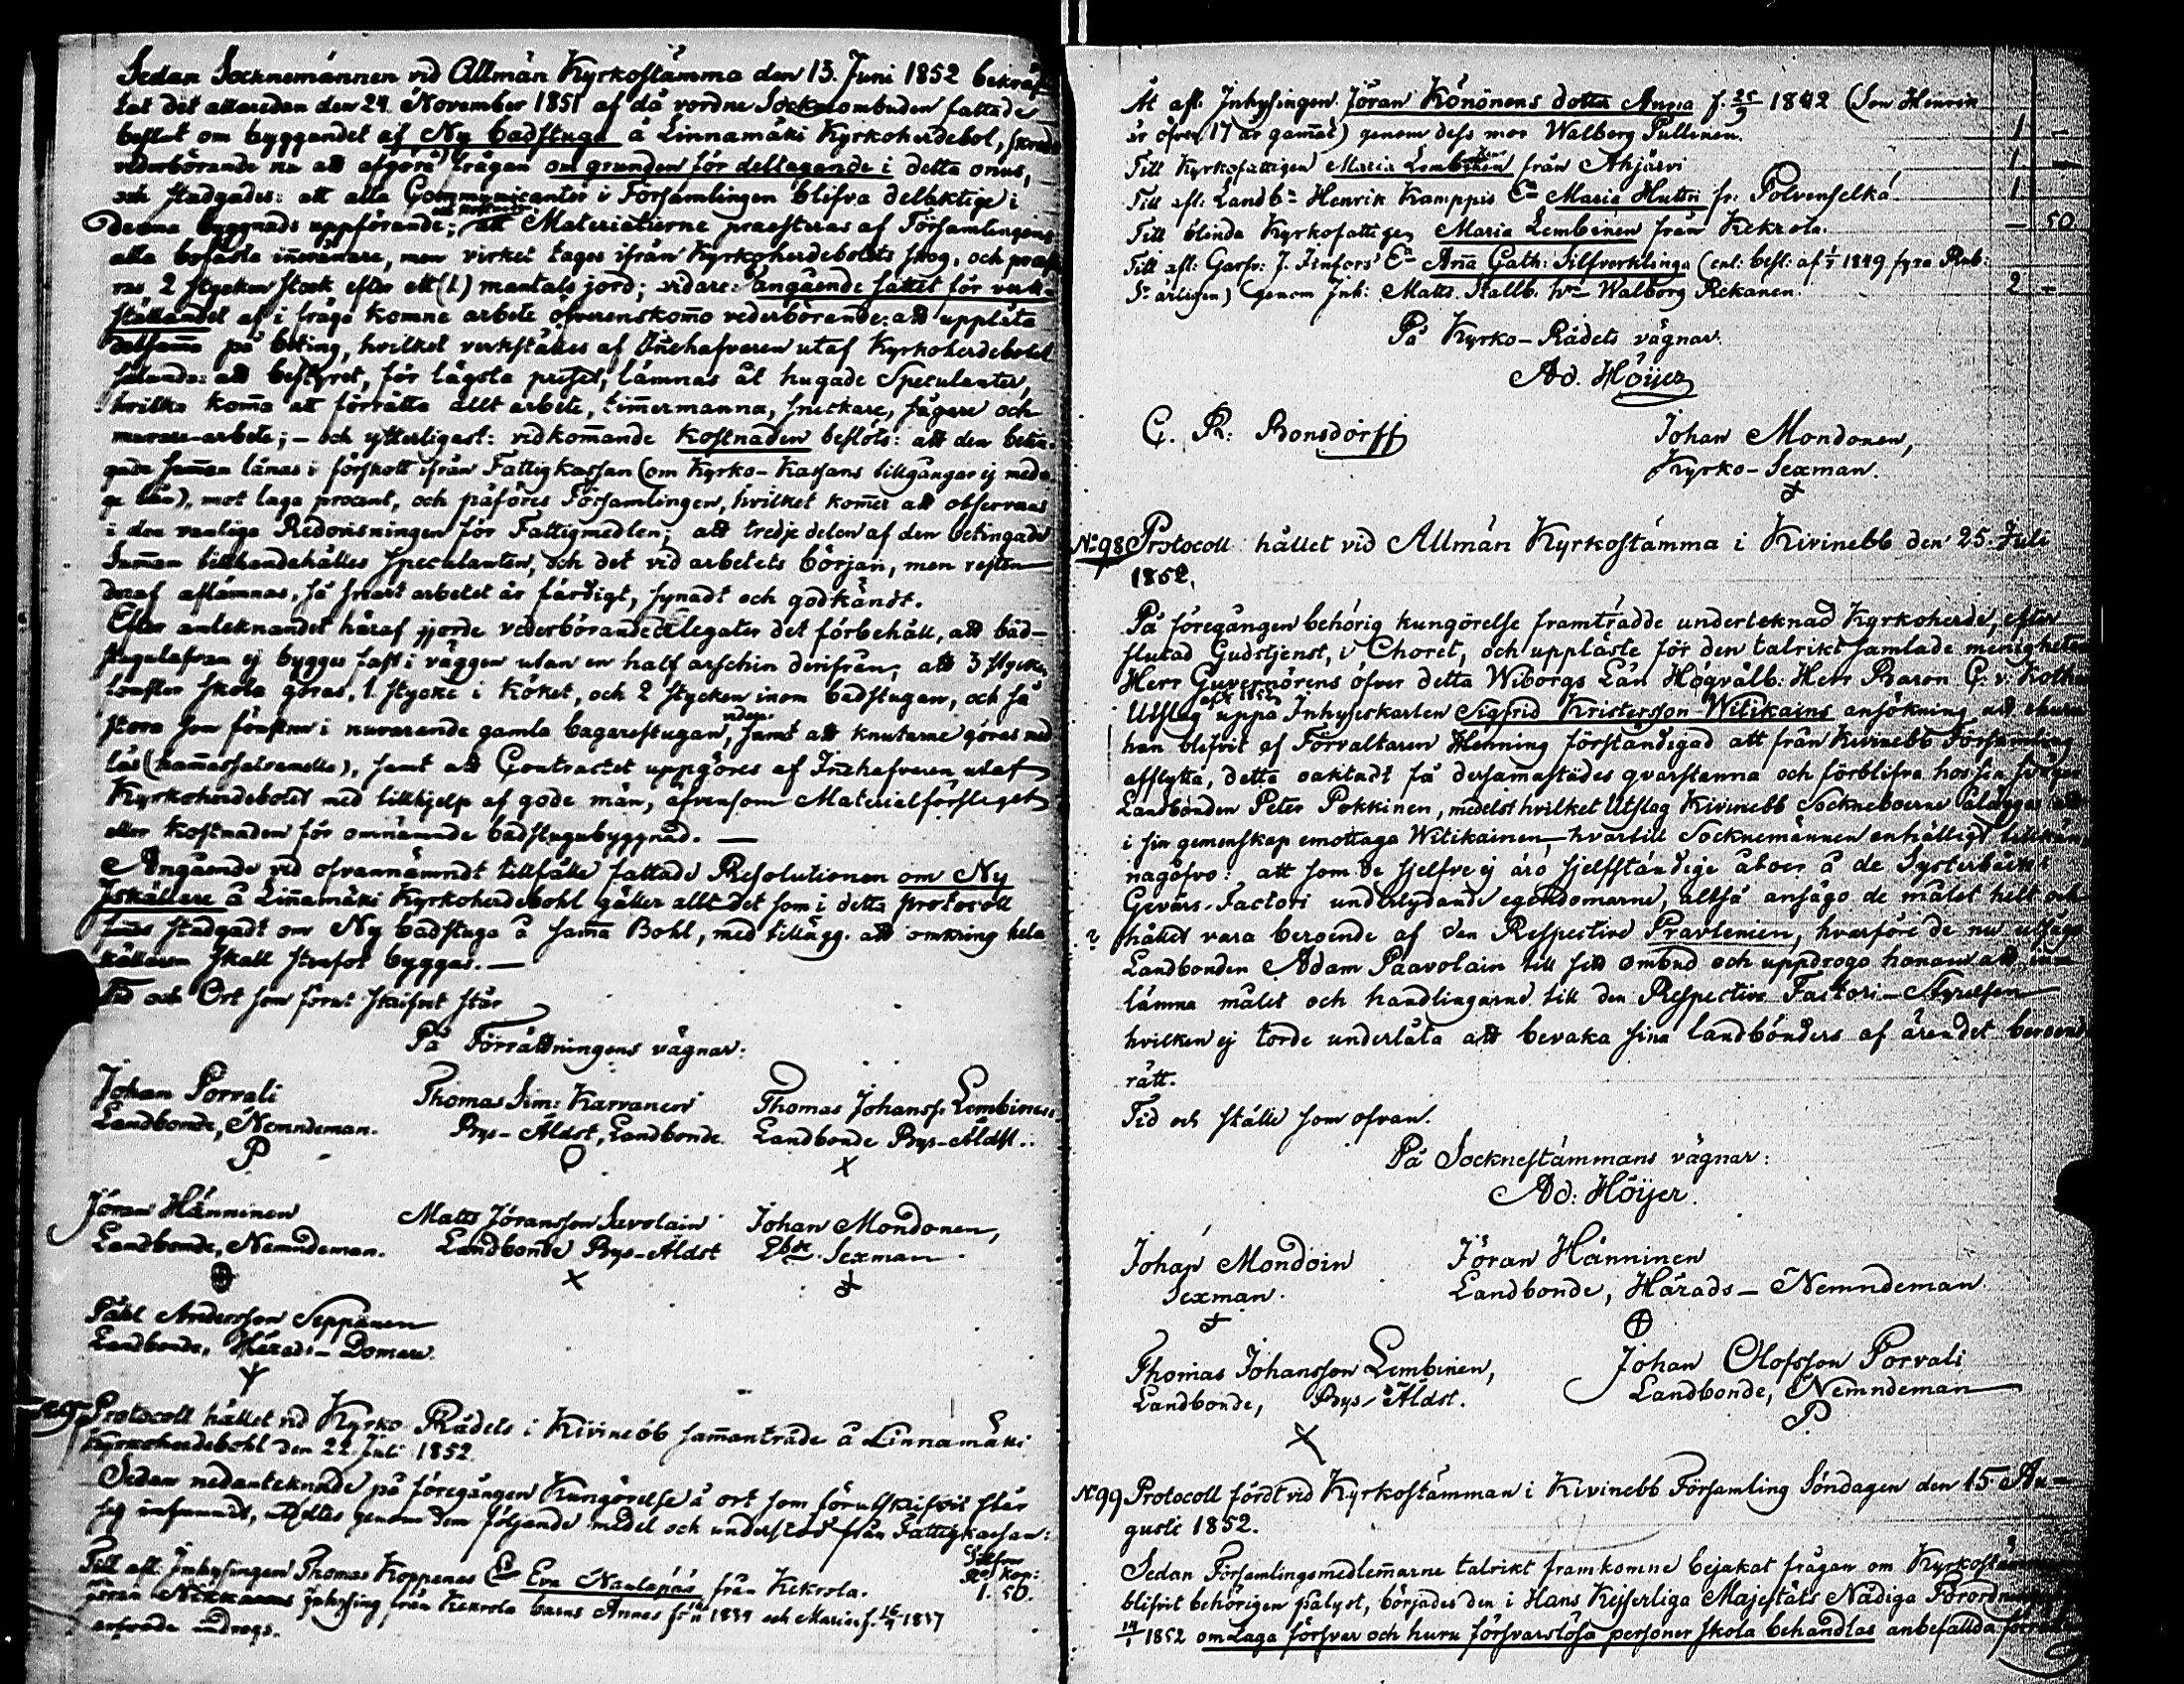 Sedan Socknemännen vid Allmän Kyrkostämma den 13. Juni 1852 bekräf-
tat det allareden den 24. November 1851 af då vordne Sockneombuden fattade
beslut om byggandet af Ny badstuga å Linnamäki Kyrkoherdebol,
vederbörande nu att afgöra frågan om grunden för deltagande i detta onus,
och stadgades: att alla Communicanter i Församlingen blifva delaktige i
denna byggnads uppförande; att Materialierne praesteras af Församlingens
alla bofasta innevånare, men virket tages ifrån Kyrkoherdebolets skog, och
2 stycken stock efter ett (1) mantals jord; vidare: angående sättet för verk-
ställandet af i fråga komne arbete öfverenskommo vederbörande: att upplåta
detsamma på beting, hvilket verkställes af Innehafveren utaf Kyrkoherdebolet
sålunda: att bestyret, för lägsta priset, lämnas åt hugade Speculanter,
hvilka komma att förrätta allt arbete, timmermanna, snickare, sågare och
murare-arbete; – och ytterligast: vidkommande kostnaden beslöts: att den betin-
gade summan lånas i förskott ifrån Fattigkassan (om Kyrko-Kassans tillgångar ej med-
ge lån), mot laga procent, och påföres Församlingen, hvilket kommer att observeras
i den vanliga Redovisningen för Fattigmedlen; att tredje delen af den betingade
Summan tillhandahålles Speculanten, och det vid arbetets början, men resten
deraf aflämnas, så snart arbetet är färdigt, synadt och godkändt.
Efter anteknandet häraf gjorde vederbörande delegater det förbehåll, att bad-
ej bygges fast i väggen utan en half arschin derifrån; att 3 stycken
fönster skola göras, 1 stycke i köket, och 2 stycken inom badstugan, och så
stora som fönstren i nuvarande gamla bagarestugan, vidare samt att knutarne göras med
lås, samt att Contractet uppgöres af Innehafveren utaf
Kyrkoherdebolet med tillhjelp af gode män, äfvensom Materialförslaget
eller kostnaden för omnämnde badstugubyggnad. —
Angående vid ofvannämndt tillfälle fattade Resolutionen om Ny
Iskällare å Linnamäki Kyrkoherdebohl gäller allt det som i detta protocoll
finnes stadgadt om Ny badstuga å samma Bohl, med tillägg: att omkring hela
källaren skall byggas. —
Tid och Ort som förut skrifvet står
På Förrättningens vägnar:
Johan Porvali Thomas Sim: Karvanen Thomas Johanss. Lembinen
Landbonde, Nemndeman. Bys-Äldst, Landbonde. Landbonde Bys-Äldst.
P O X
Jöran Hänninen Matts Jöransson Savolain Johan Mondonen,
Landbonde, Nemndeman. Landbonde Bys-Äldst Sexman.
X
Påhl Andersson Seppänen
Landbonde, Härads-Domare.
Protocoll hållet vid Kyrko Rådets i Kivinebb sammanträde å Linnamäki
Kyrkoherdebohl den 22. Juli 1852.
Sedan nedanteknade på föregången Kungörelse å ort som förutskrifvit står
sig infunnit, utdeltes genom dem följande medel och understöd från Fattigkassan:
Silfver
Rub. Kop:
Till afl. Inhysingen Thomas Koppanas Enka Eva Naulapää från Kekrola. 1. 50.
Jöran inhysing från Kekrola barns Annas 1834 och Marias f. 1837
indrogs.
At afl. Inhysingen Jöran Könönens dotter Anna f. 25/9 1842 (Son Henrik
är öfver 17 år gammal) genom dess mor Walborg Pullinen. 1 –
Till Kyrkofattigen Maria Lembinen från Ahjärvi 1 —
Till afl: Landb: Henrik Kamppis Ea Maria Huttu fr. Polvenselkä. 1.
Till blinda Kyrkofattigen Maria Lembinen från Kekrola. — 50.
Till afl: Garfv: J. Ea Anna Cath: Silfverklinga (enl: besl: af 1/1 1849 fyra Rub:
Sr årligen) genom Inh: Matts Hallb. Walborg Rekanen. 2 –
På Kyrko-Rådets vägnar:
Ad. Höijer
C. R: Bonsdorff Johan Mondonen,
Kyrko-Sexman.
No 98 Protocoll hållet vid Allmän Kyrkostämma i Kivinebb den 25. Juli
1852.
På föregången behörig kungörelse framträdde underteknad Kyrkoherde, efter
slutad Gudstjenst, i Choret, och uppläste för den talrikt samlade menigheten
Herr Guvernörens öfver detta Wiborgs Län Högvälb: Herr Baron C. v. Kothen
Utslag uppå Inhyseskarlen Sigfrid Kristersson Witikains ansökning att
han blifvit af Förvaltaren Henning förständigad att från Kivinebb Församling
afflytta, detta oaktadt få dersammastädes qvarstanna och förblifva hos sin svåger
Landbonden Peter Pokkinen, medelst hvilket Utslag Kivinebb Sockneboerne åläggas att
i sin gemenskap emottaga Witikainen, hvartill Socknemännen enhälligt
att som de sjelfve ej äro sjelfständige åboer å de Systerbäcks
Gevärs-Factori underlydande egendomarne, altså ansågo de målet helt och
? hållet vara beroende af den Respective Pravlenien, hvarföre de nu utsågo
Landbonden Adam Paavolain till sitt ombud och uppdrogo honom att in-
lämna målet och handlingarne till den Respective Factori-Styrelsen
hvilken ej torde underlåta att bevaka sina landbönders af ärendet beroende
rätt.
Tid och ställe som ofvan.
På Socknestämmans vägnar:
Ad: Höijer.
Johan Mondoin Jöran Hänninen
Sexman. Landbonde, Härads-Nemndeman
Thomas Johansson Lembinen, Johan Olofsson Porvali
Landbonde, Bys-Äldst. Landbonde, Nemndeman
X P
No 99 Protocoll fördt vid Kyrkostämman i Kivinebb Församling Söndagen den 15. Au-
gusti 1852.
Sedan Församlingsmedlemmarne talrikt framkomne bejakat frågan om Kyrkostämman
blifvit behörigen pålyst, börjades den i Hans Kejserliga Majestäts Nådiga Förordning
1852 om Laga försvar och huru försvarslösa personer skola behandlas anbefallda